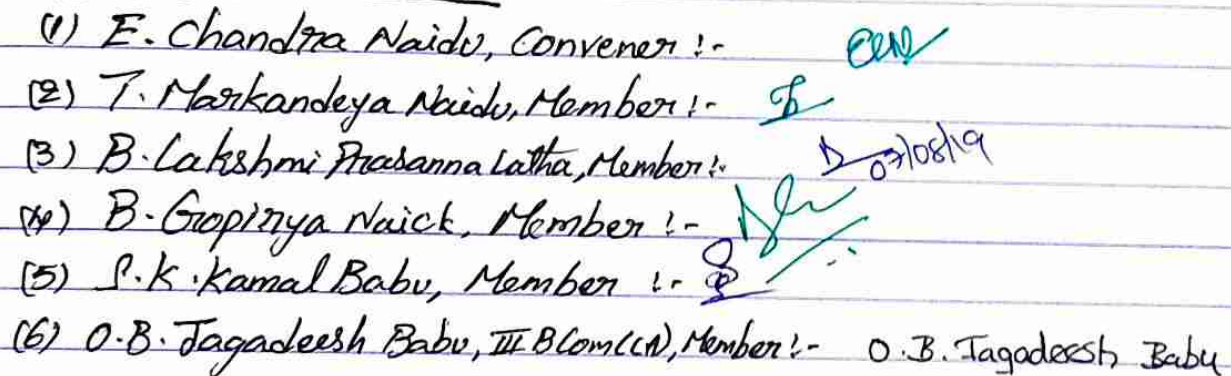 (1) E. Chandra Naidu, Convener :-
(2) T. Markandeya Naidu, Member :-
(3) B. Lakshmi Prasanna Latha, Member :- 07/08/19
(4) B. Gopinya Naick, Member :-
(5) S.K. Kamal Babu, Member :-
(6) O.B. Jagadeesh Babu, III BCom(CA), Member :- O.B. Jagadeesh Babu